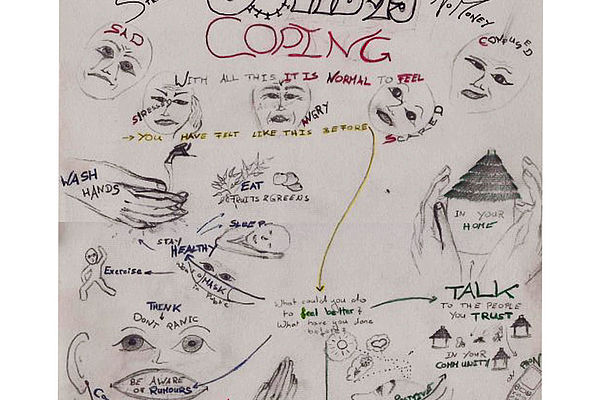 No MONEY
COPING
SAD
CONFUSED
WITH ALL THIS IT IS NORMAL TO FEEL
STRESSED
ANGRY
SCARED
→ YOU HAVE FELT LIKE THIS BEFORE
WASH
HANDS
EAT
FRUITS & GREENS
IN YOUR
HOME
SLEEP
STAY
HEALTHY
Exercise
MASK
TALK
TO THE PEOPLE
YOU TRUST
What could you do
to feel better?
What have you done
before?
THINK
DONT PANIC
IN YOUR
COMMUNITY
BE AWARE
OF RUMOURS